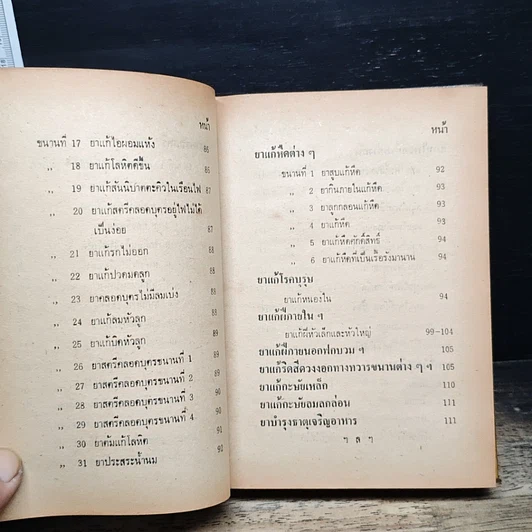 หน้า
ขนานที่ 17 ยาแก้ไอผอมแห้ง 86
,, 18 ยาแก้โลหิตตีขึ้น 86
,, 19 ยาแก้สันนิบาตตะคิวในเรือนไฟ 87
,, 20 ยาแก้สตรีคลอดบุตรอยู่ไฟไม่ได้
เป็นง่อย 87
,, 21 ยาแก้รกไม่ออก 88
,, 22 ยาแก้ปวดมดลูก 88
,, 23 ยาคลอดบุตรไม่มีลมเบ่ง 88
,, 24 ยาแก้ลมหัวลูก 89
,, 25 ยาแก้บิดหัวลูก 89
,, 26 ยาสตรีคลอดบุตรขนานที่ 1 89
,, 27 ยาสตรีคลอดบุตรขนานที่ 2 89
,, 28 ยาสตรีคลอดบุตรขนานที่ 3 90
,, 29 ยาสตรีคลอดบุตรขนานที่ 4 90
,, 30 ยาต้มแก้โลหิต 90
,, 31 ยาประสระน้ำนม 90
หน้า
ยาแก้หืดต่าง ๆ
ขนานที่ 1 ยาสูบแก้หืด 92
,, 2 ยากินภายในแก้หืด 93
,, 3 ยาลูกกลอนแก้หืด 93
,, 4 ยาแก้หืด 93
,, 5 ยาแก้หืดศักดิ์สิทธิ์ 94
,, 6 ยาแก้หืดที่เป็นเรื้อรังมานาน 94
ยาแก้โรคบุรุษ
ยาแก้หนองใน 94
ยาแก้ฝีภายใน ๆ
ยาแก้ฝีหัวเล็กและหัวใหญ่ 99-104
ยาแก้ฝีภายนอกฟกบวม ๆ 105
ยาแก้ริดสีดวงงอกทางทวารขนานต่าง ๆ ๆ 105
ยาแก้กะษัยเหล็ก 110
ยาแก้กะษัยลมลกล่อน 111
ยาบำรุงธาตุเจริญอาหาร 111
ๆ ล ๆ